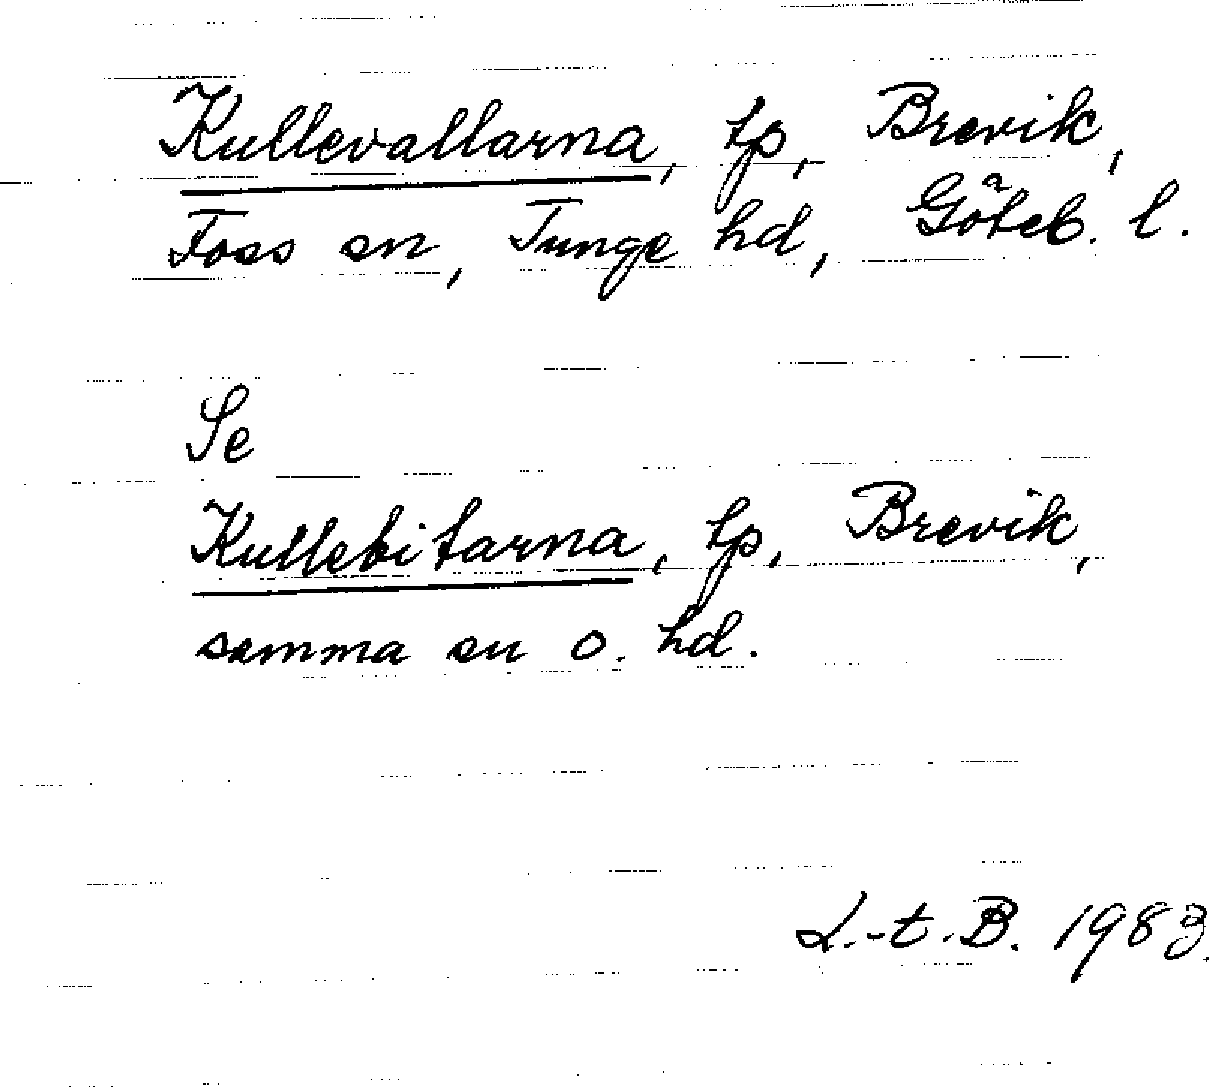 Kullevallarna, tp, Brevik,
Foss sn, Tunge hd, Göteb. l.
Se
Kullebitarna, tp, Brevik,
samma sn o. hd.
L.-t. B. 1983.